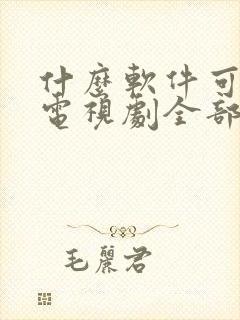 什麼軟件可
電視劇全部
毛麗君